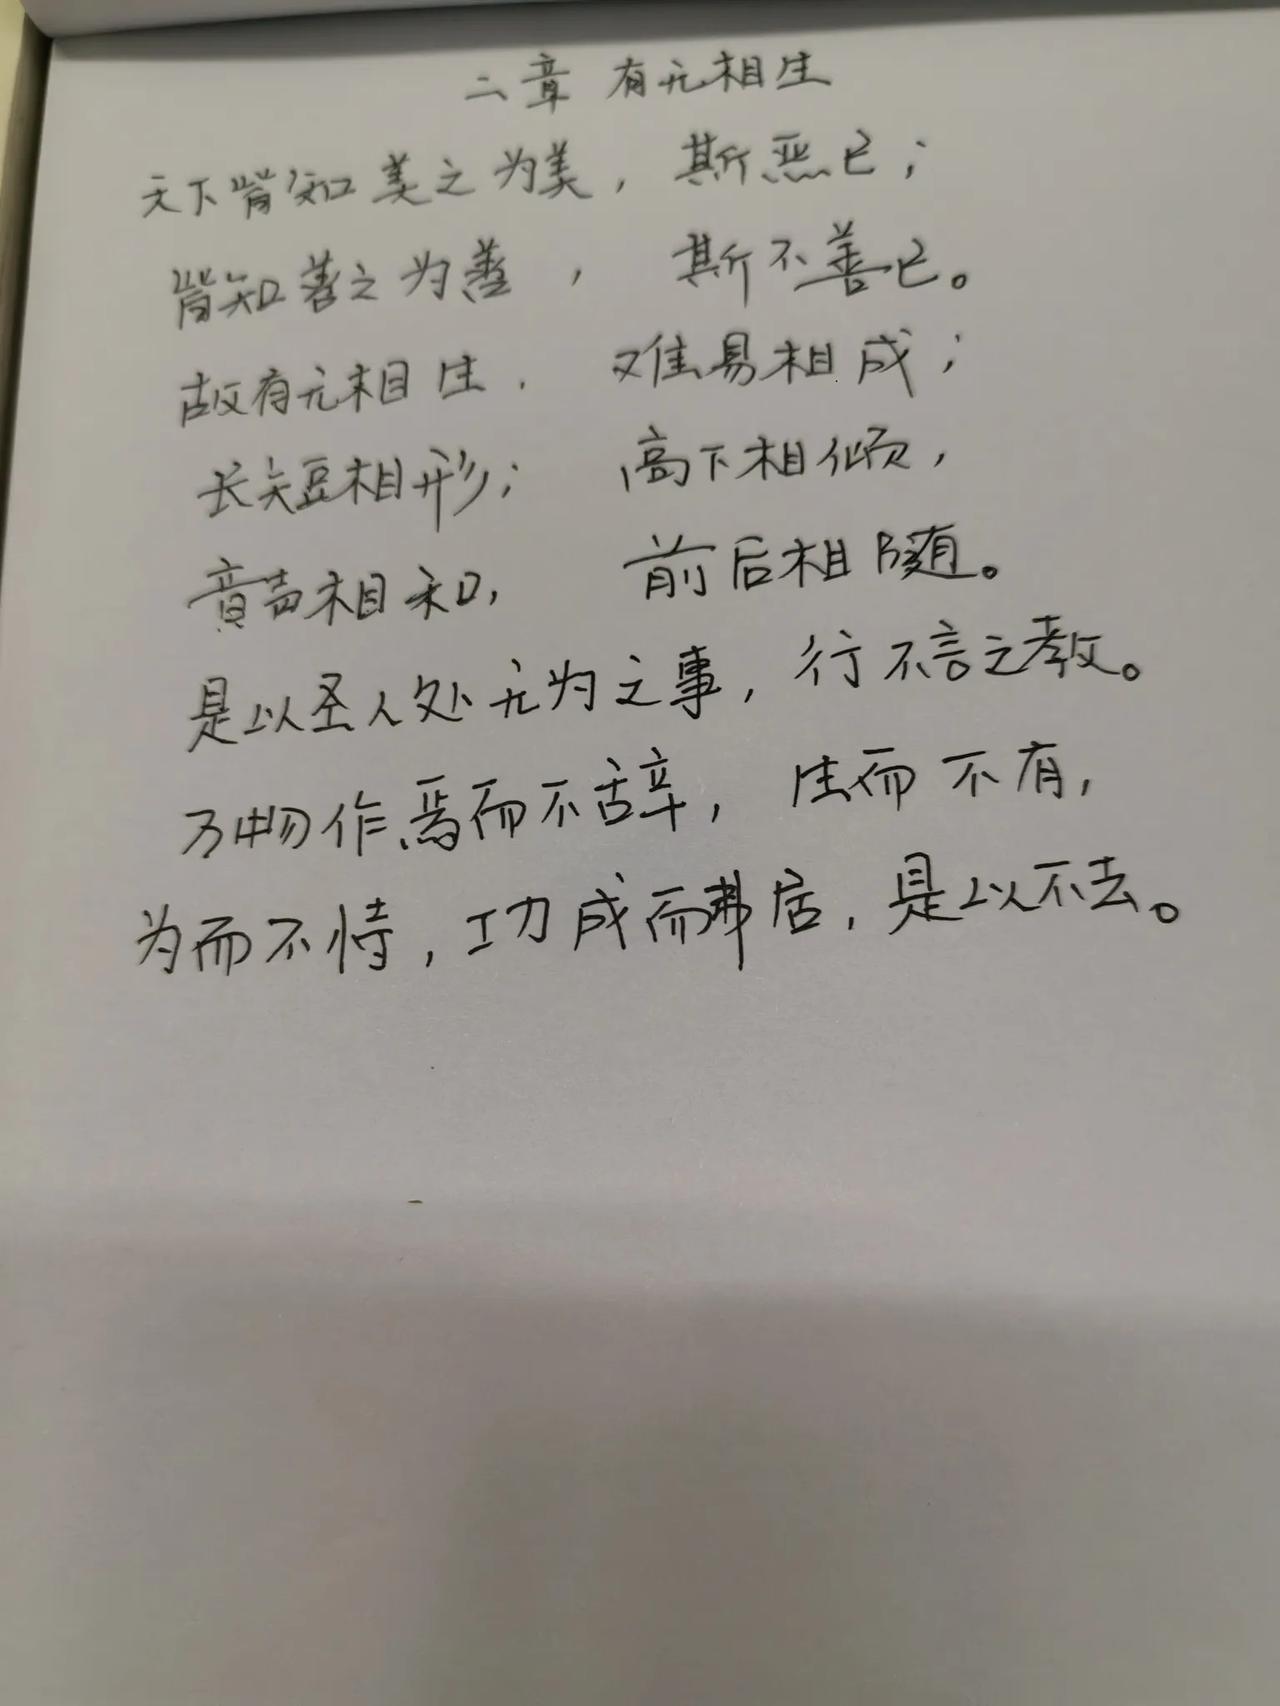 二章 有无相生
天下皆知美之为美，斯恶已；
皆知善之为善，斯不善已。
故有无相生，难易相成；
长短相形；高下相倾，
音声相和，前后相随。
是以圣人处无为之事，行不言之教。
万物作焉而不辞，生而不有，
为而不恃，功成而弗居，是以不去。